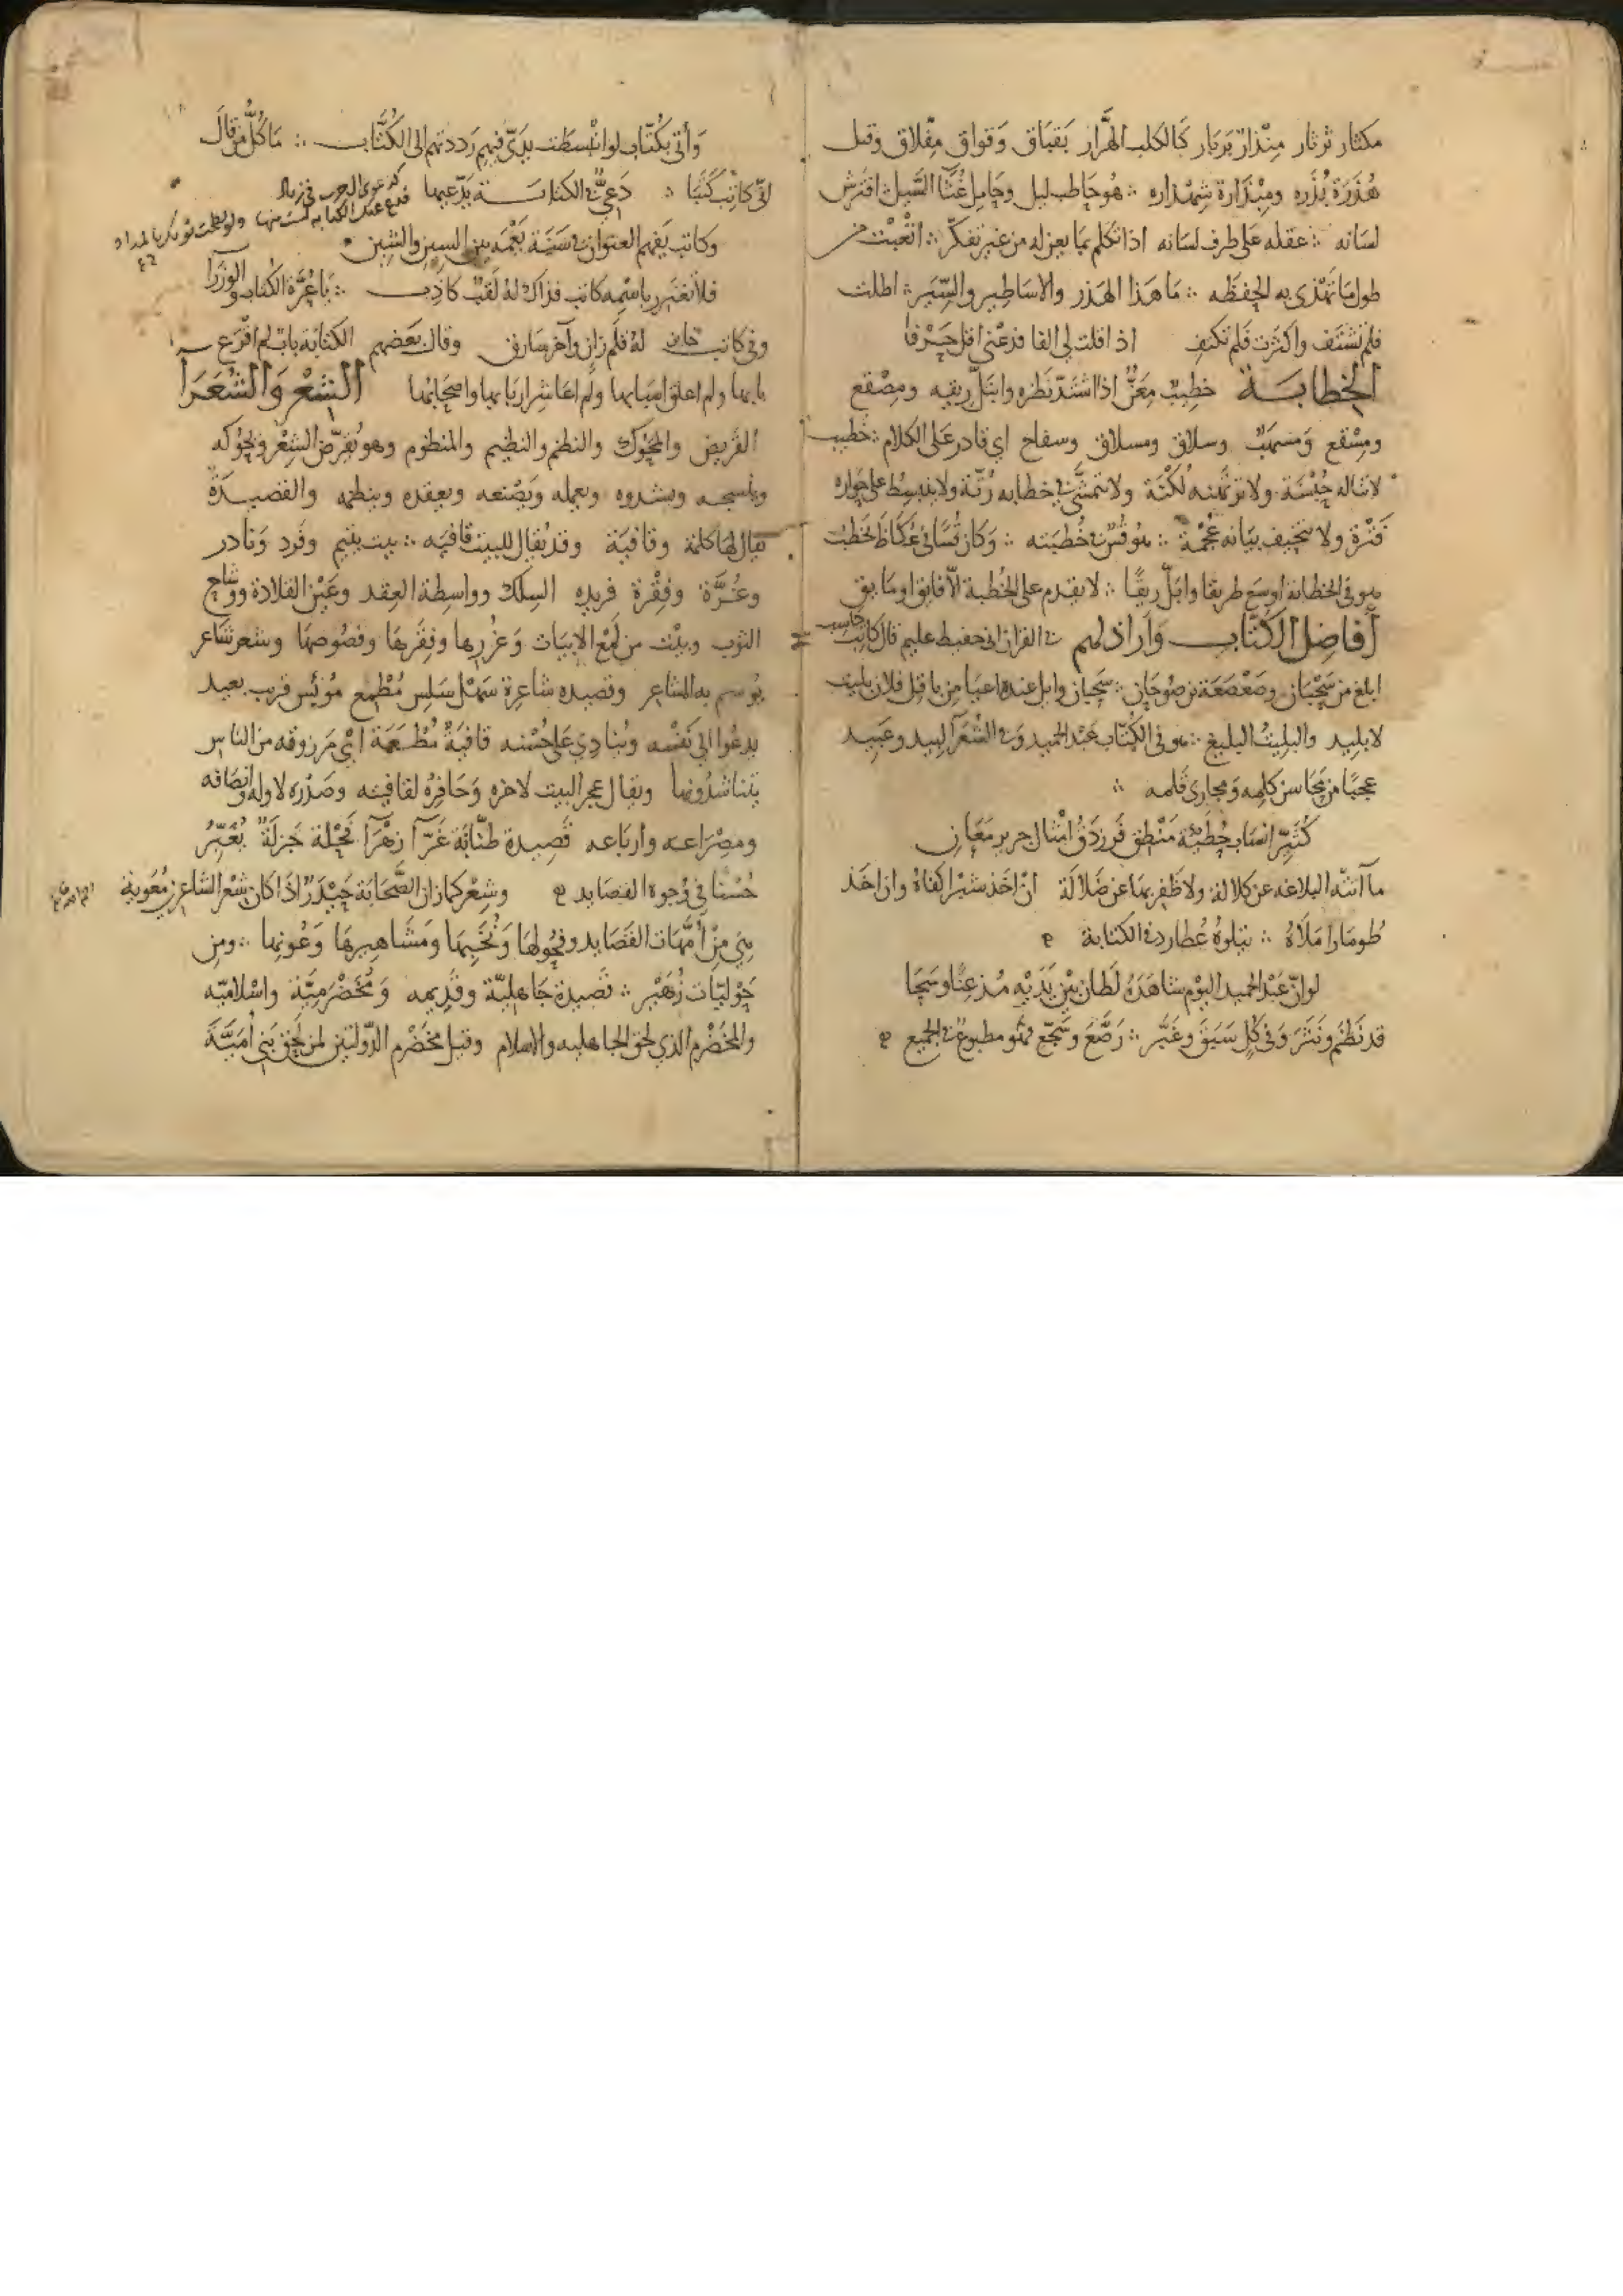 مكثار ثرثار مهذار بربار كالكلب الهرار بقباق وقواق مفلاق وقيل
هذرة بذره ومبذارة شمذاره ∴ هو حاطب ليل وحامل غثا السيل افترش
لسانه ∴ عقله على طرف لسانه اذا تكلم بما يعن له من غير تفكر ∴ اتعبت من
طول ما تهذى به الحفظه ∴ ما هذا الهذر والاساطير والسير ∴ اطلت
فلم تشتف واكثرت فلم تكتف اذا قلت لى الفا فدعنى اقل حرفا
الخطابـة خطيب معن اذا اشتد نظره وابتل ريقه ومصقع
ومسقع ومسهب وسلاق ومسلاق وسفاح اي قادر على الكلام ∴ خطيب
لا تناله حبسة ولا ترتهنه لكنة ولا تتمشى فى خطابه رتة ولا ينبسط على حواره
فترة ولا تحيف بيانه عجمة ∴ هو قس فى خطبته ∴ وكان قسا فى عكاظ يخطب
هو فى الخطابة اوسع طريقا وابل ريقا ∴ لا يقدم على الخطبة الا فايق او مايق
أفاضل الكتاب وأراذلهم فى القران انى حفيظ عليم قال كاتب حاسب
ابلغ من سحبان وصعصعة بن صوحان ∴ سحبان وايل عنده اعيا من باقل فلان بليت
لا بليد والبليت البليغ ∴ هو فى الكتاب عبد الحميد وفى الشعرآ لبيد وعبيد
عجبا من محاسن كلمه ومجارى قلمه ∴
كثير انساب حطيئة منطق فرزدق امثال جرير معان
ما آتته البلاغه عن كلالة ولا ظفر بها عن ضلالة ان اخذ شبرا كفاه وان اخذ
طومارا ملأه ∴ يتلوه عطارد فى الكتابة
لو ان عبد الحميد اليوم شاهده لظان بين يديه مذعنا وسحا
قد نظم ونثر وفى كل سبق وغبر ∴ رصع وسجع فهو مطبوع فى الجميع
وأتى بكتاب لو انبسطت يدى فيهم رددتهم الى الكتاب ∴ ما كل من قال
انى كاتب كتبا ∴ دعى فى الكتابـة يدعيها كدعوى آل حرب فى زياد
فدع عنك الكتابة لست منها ولو لطخت ثوبك بالمداد
وكاتب يفهم العنوان فى سنة يعمه بين السين والشين
فلا تغترر باسمه كاتب فذاك له لقب كاذب ∴ يا عرة الكتاب والوزرآ
وفى كاتب خاين له قلم زان وآخر سارق وقال بعضهم الكتابة باب لم اقرع
بابها ولم اعلق اسبابها ولم اعاشر اربابها واصحابها الشعر والشعرآ
القريض والمحوك والنظم والنظيم والمنظوم وهو يقرض الشعر ويحوكه
وينسجه ويشدوه ويعمله ويصنعه ويعقده وينظمه والقصيدة
يقال لها كلمة وقافية وقد يقال للبيت قافيه ∴ بيت يتيم وفرد ونادر
وغرة وفقرة فريده السلك وواسطة العقد وعين القلادة ووشاح
الثوب وبيت من لمع الابيات وغررها وفقرها وفصوصها وشعر شاعر
يوسم به الشاعر وقصيده شاعرة سهل سلس مطمع موئس قريب بعيد
يدعوا الى نفسه وينادي على حسنه قافية مطعمة اي مرزوقه من الناس
يتناشدونها ويقال عجز البيت لاخره وحافره لقافيته وصدره لاوله وانصافه
ومصراعه وارباعه قصيدة طنانة غرآ زهرآ فحلة جزلة يعبر
حسنا فى وجوه القصايد وشعر كما زان الصحابة حيدر اذا كان شعر الشاعرين معوية
هى من امهات القصايد وفحولها ونخبها ومشاهيرها وعونها ∴ ومن
حوليات زهير ∴ قصيدة جاهلية وقديمه ومخضرمية واسلاميه
والمخضرم الذي لحق الجاهليه والاسلام وقيل مخضرم الدولتين لمن لحق بنى أمية